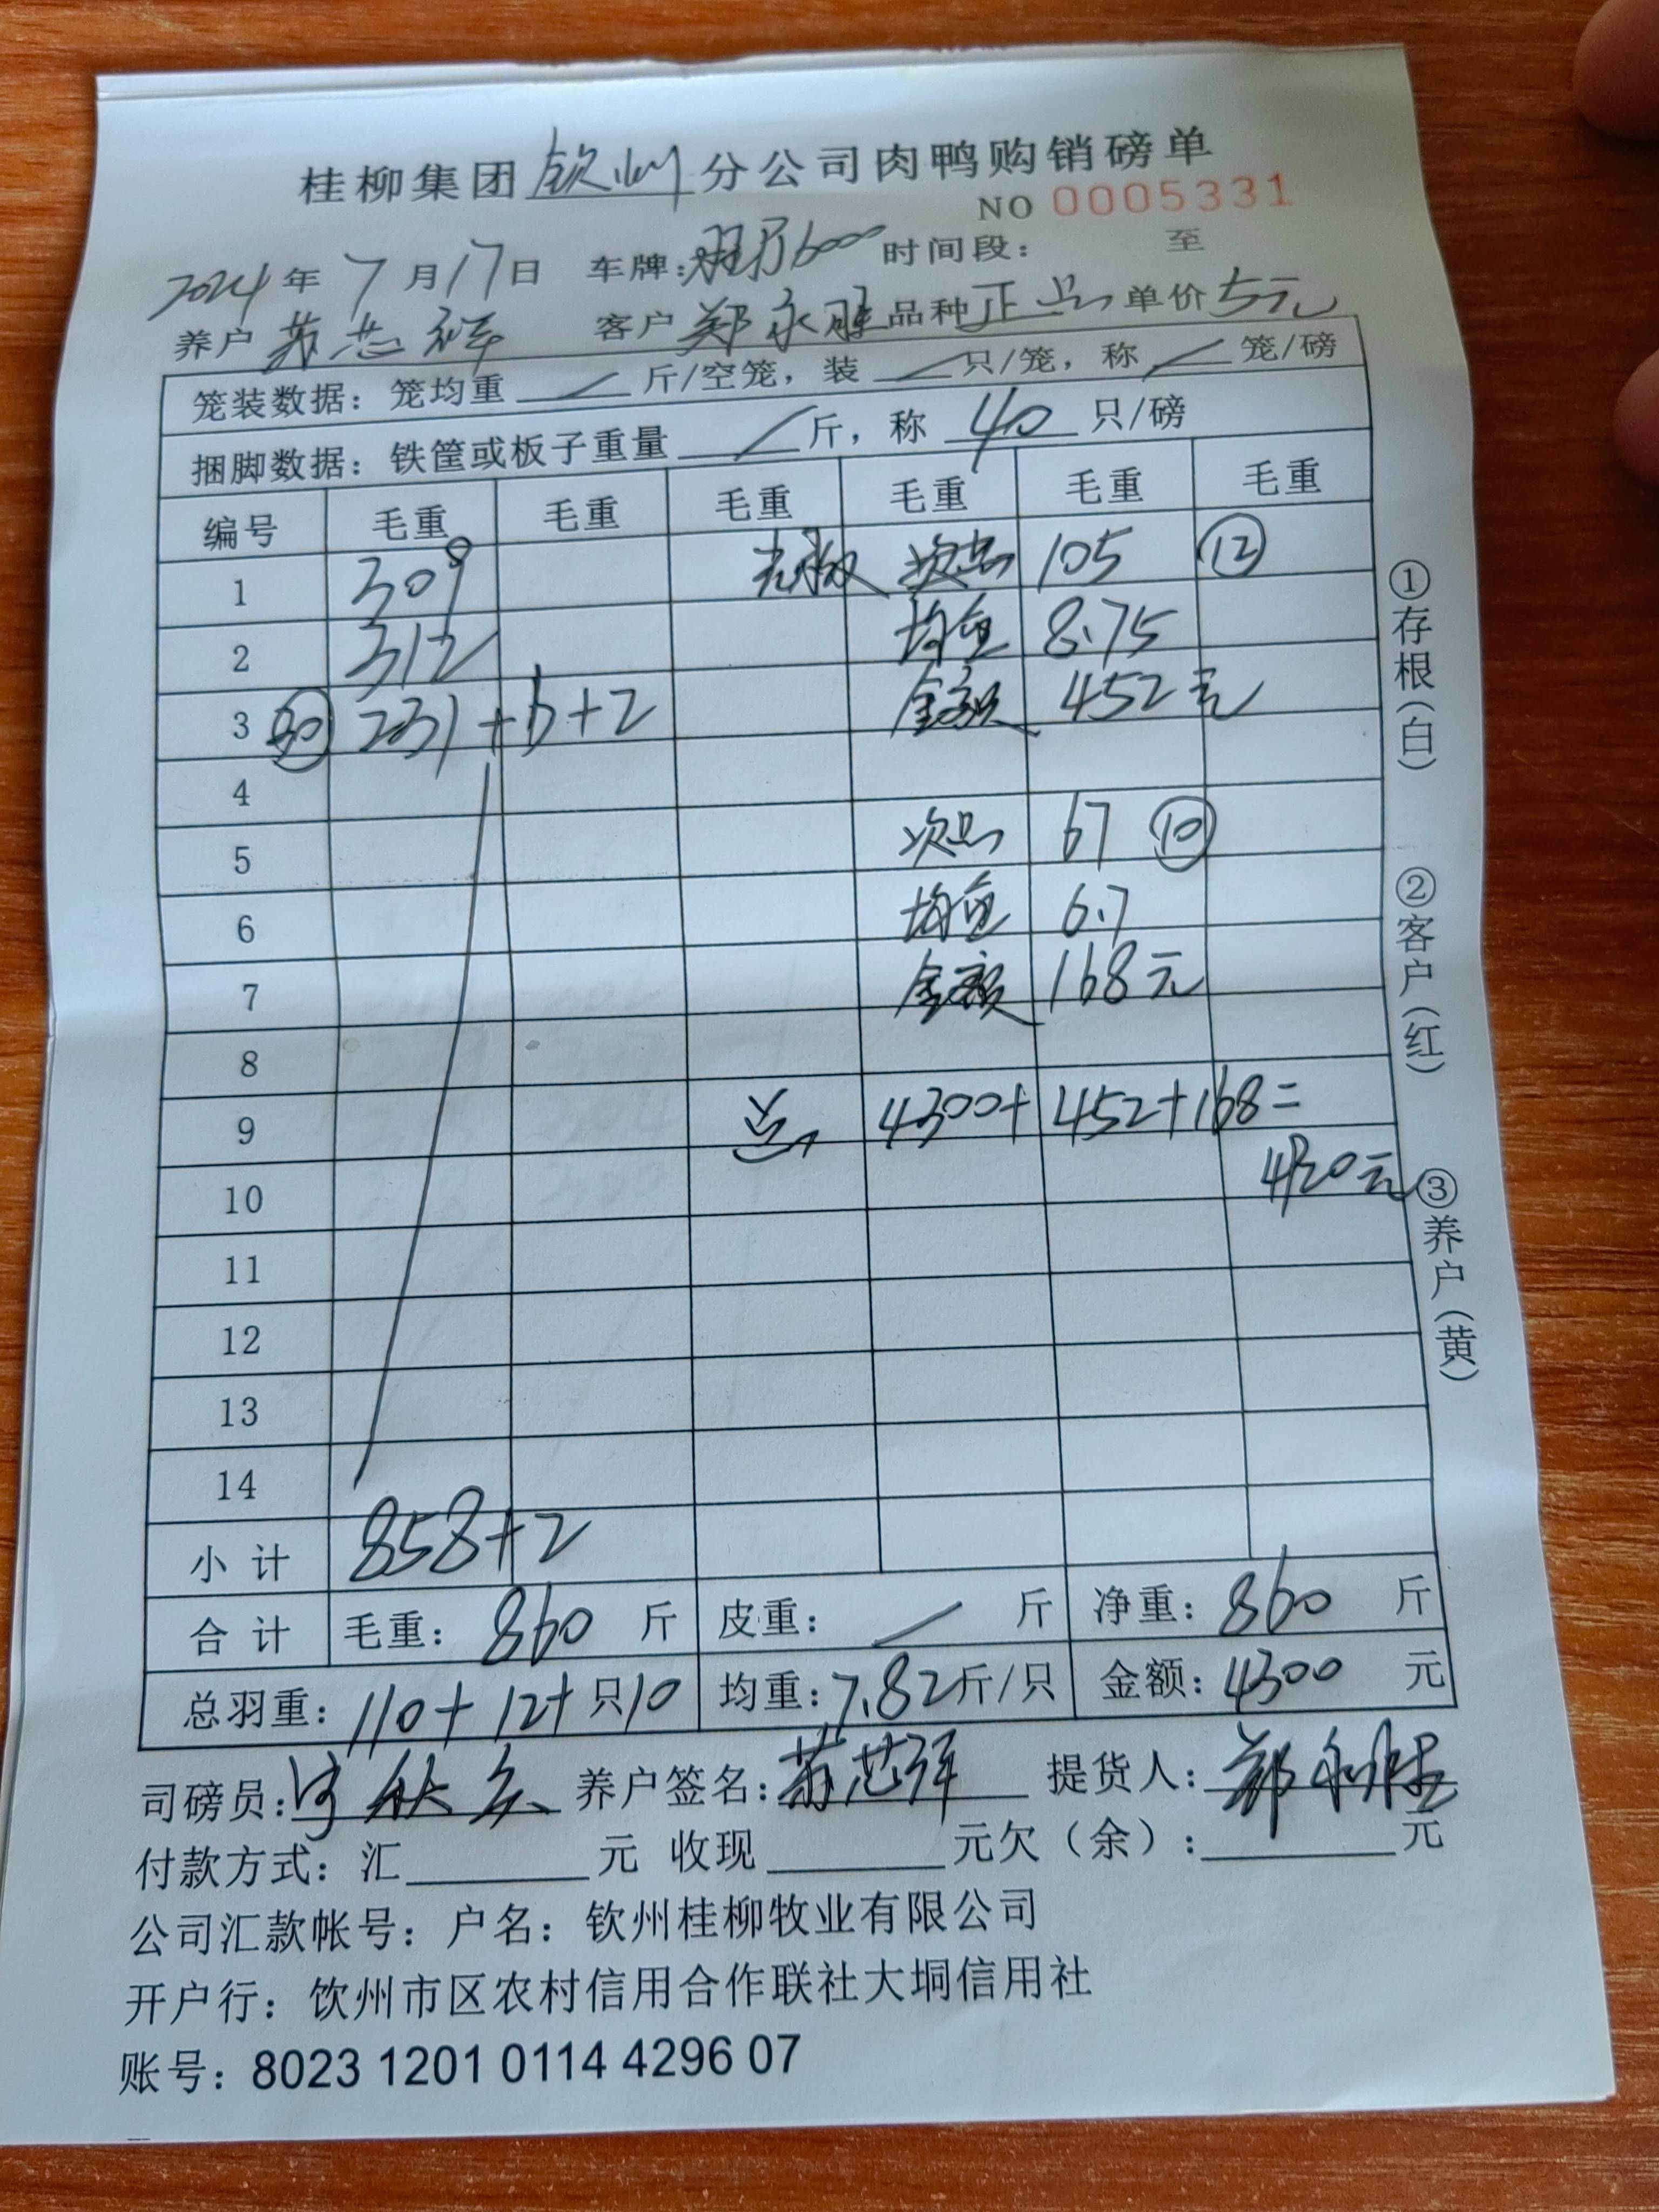 桂柳集团 钦州 分公司肉鸭购销磅单
NO 0005331
2024 年 7 月 17 日 车牌: 6000 时间段: 至
养户 苏芯祥 客户 郑永胜 品种 正品 单价 5元
笼装数据: 笼均重 / 斤/空笼, 装 / 只/笼, 称 / 笼/磅
捆脚数据: 铁筐或板子重量 / 斤, 称 40 只/磅
编号 毛重 毛重 毛重 毛重 毛重 毛重
1 309 次品 105 ⑫
2 312 均重 8.75
3 ㉚ 231 + 6 + 2 金额 452元
4
5 次品 67 ⑩
6 均重 6.7
7 金额 168元
8
9 总 4300+452+168=
10 4920元
11
12
13
14
小 计 858+2
合 计 毛重: 860 斤 皮重: / 斤 净重: 860 斤
总羽重: 110+12+ 只10 均重: 7.82 斤/只 金额: 4300 元
司磅员: 养户签名: 苏芯祥 提货人: 郑永胜
付款方式: 汇 元 收现 元欠(余): 元
公司汇款帐号: 户名: 钦州桂柳牧业有限公司
开户行: 钦州市区农村信用合作联社大垌信用社
账号: 8023 1201 0114 4296 07
①存根(白)
②客户(红)
③养户(黄)